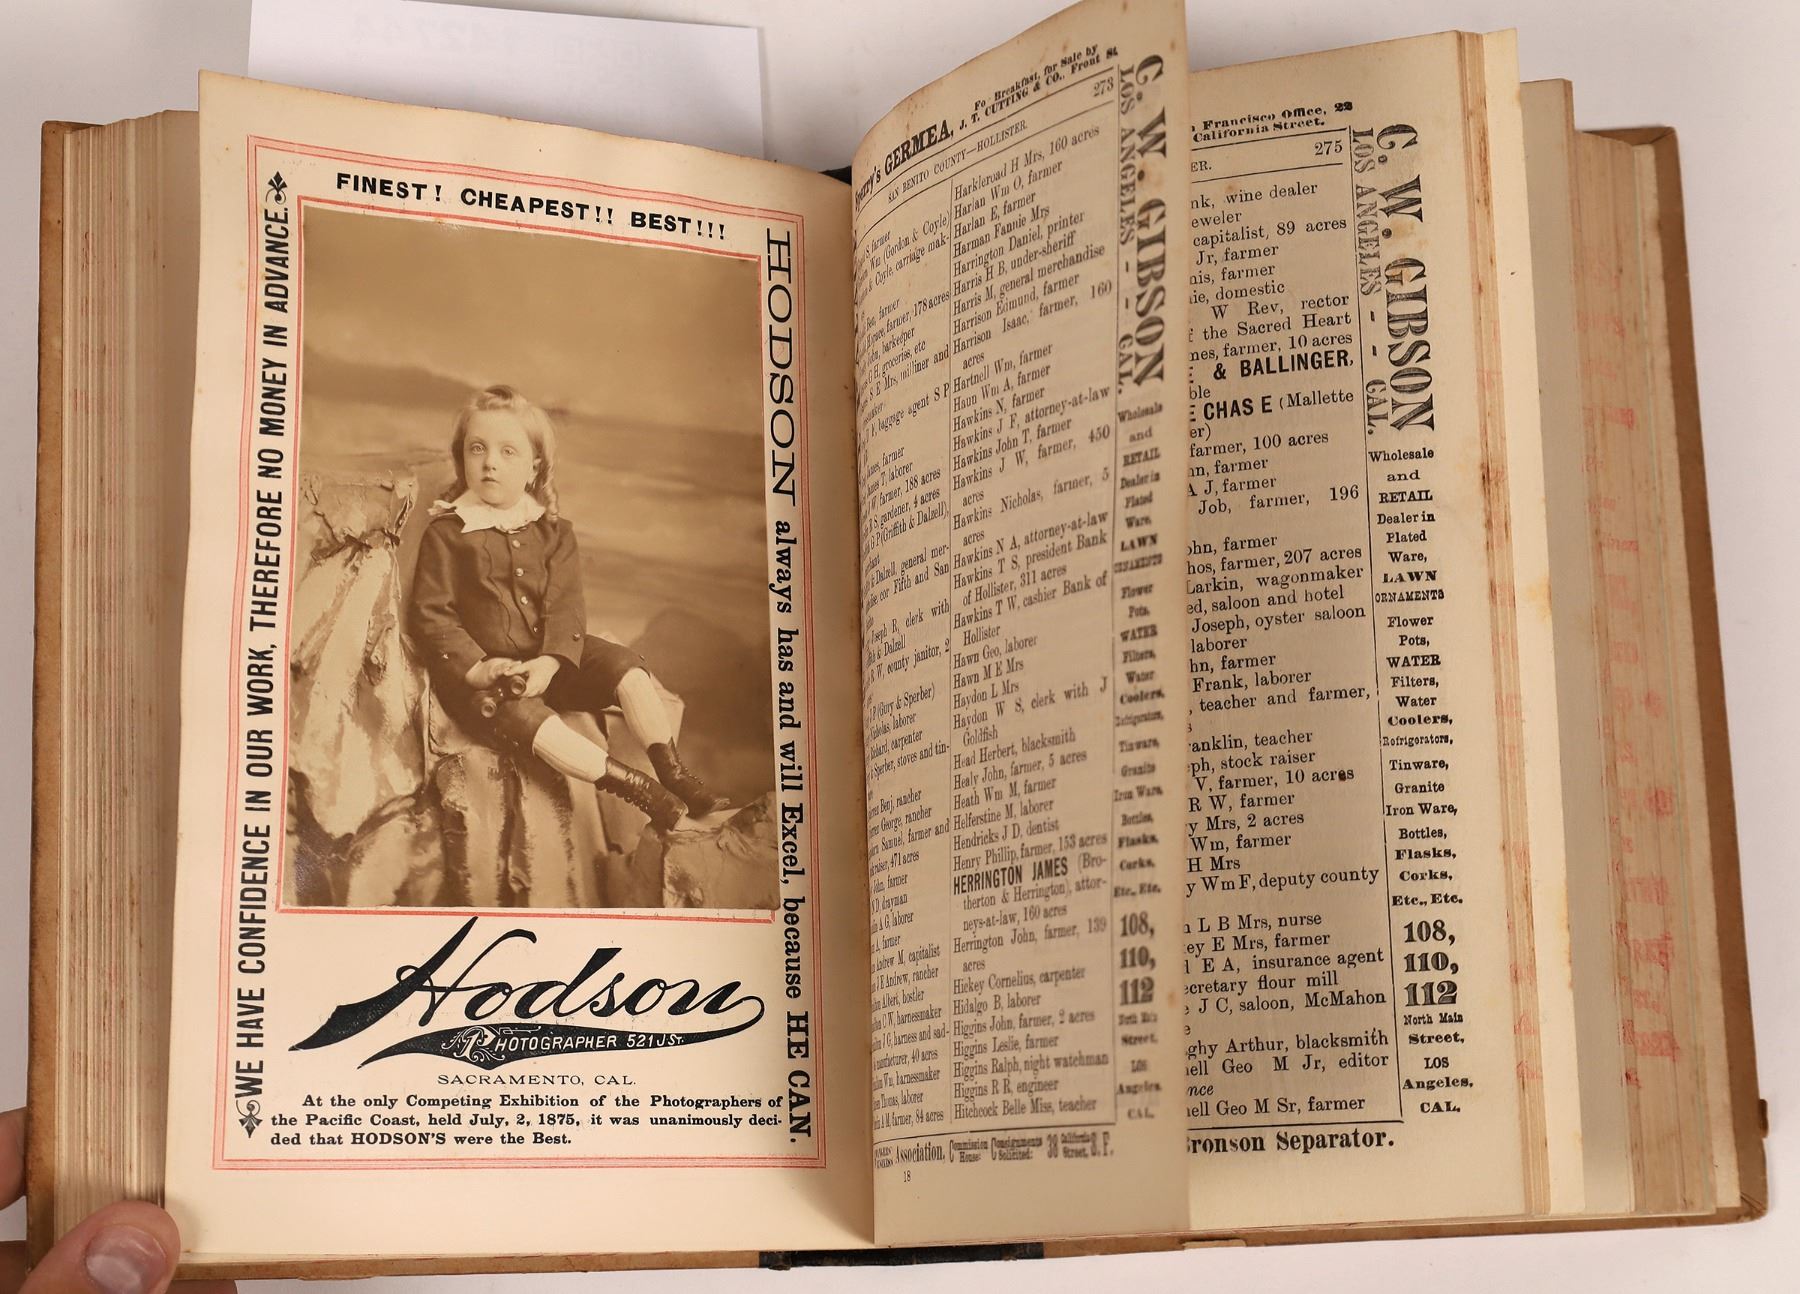 FINEST! CHEAPEST!! BEST!!!
WE HAVE CONFIDENCE IN OUR WORK, THEREFORE NO MONEY IN ADVANCE.
HODSON always has and will Excel, because HE CAN.
Hodson
PHOTOGRAPHER 521 J ST.
SACRAMENTO, CAL.
At the only Competing Exhibition of the Photographers of
the Pacific Coast, held July, 2, 1875, it was unanimously deci-
ded that HODSON'S were the Best.
GERMEA, Breakfast, for Sale by
J. T. CUTTING & CO., Front St.
SAN BENITO COUNTY—HOLLISTER. 273
farmer
Wm (Gordon & Coyle)
& Coyle, carriage mak-
farmer
farmer, 178 acres
John, barkeeper
G H, groceries, etc
S E Mrs, milliner and
baggage agent S P
farmer
James T, laborer
J W, farmer, 188 acres
R S, gardener, 4 acres
G P (Griffith & Dalzell),
& Dalzell, general mer-
cor Fifth and San
Joseph R, clerk with
& Dalzell
R W, county janitor, 2
P (Gury & Sperber)
Nicholas, laborer
carpenter
& Sperber, stoves and tin-
Benj, rancher
George, rancher
Samuel, farmer and
471 acres
John, farmer
N D, drayman
A G, laborer
A, farmer
Andrew M, capitalist
J E Andrew, rancher
Albert, hostler
C W, harnessmaker
J G, harness and sad-
manufacturer, 40 acres
Wm, harnessmaker
Thomas, laborer
A M, farmer, 84 acres
Harkleroad H Mrs, 160 acres
Harlan Wm O, farmer
Harlan E, farmer
Harman Fannie Mrs
Harrington Daniel, printer
Harris H B, under-sheriff
Harris M, general merchandise
Harrison Edmund, farmer
Harrison Isaac, farmer, 160
acres
Hartnell Wm, farmer
Haun Wm A, farmer
Hawkins N, farmer
Hawkins J F, attorney-at-law
Hawkins John T, farmer
Hawkins J W, farmer, 450
acres
Hawkins Nicholas, farmer, 5
acres
Hawkins N A, attorney-at-law
Hawkins T S, president Bank
of Hollister, 311 acres
Hawkins T W, cashier Bank of
Hollister
Hawn Geo, laborer
Hawn M E Mrs
Haydon L Mrs
Haydon W S, clerk with J
Goldfish
Head Herbert, blacksmith
Healy John, farmer, 5 acres
Heath Wm M, farmer
Helferstine M, laborer
Hendricks J D, dentist
Henry Phillip, farmer, 153 acres
HERRINGTON JAMES (Bro-
therton & Herrington), attor-
neys-at-law, 160 acres
Herrington John, farmer, 139
acres
Hickey Cornelius, carpenter
Hidalgo B, laborer
Higgins John, farmer, 2 acres
Higgins Leslie, farmer
Higgins Ralph, night watchman
Higgins R R, engineer
Hitchcock Belle Miss, teacher
Association, Commission House: Consignments Solicited: 38 California Street, S. F.
18
C. W. GIBSON
LOS ANGELES - - CAL.
Wholesale
and
RETAIL
Dealer in
Plated
Ware,
LAWN
ORNAMENTS
Flower
Pots,
WATER
Filters,
Water
Coolers,
Refrigerators,
Tinware,
Granite
Iron Ware,
Bottles,
Flasks,
Corks,
Etc., Etc.
108,
110,
112
North Main
Street,
LOS
Angeles,
CAL.
Francisco Office, 22
California Street.
ER. 275
nk, wine dealer
eweler
capitalist, 89 acres
Jr, farmer
nis, farmer
ie, domestic
W Rev, rector
f the Sacred Heart
mes, farmer, 10 acres
& BALLINGER,
ble
CHAS E (Mallette
er)
farmer, 100 acres
nn, farmer
A J, farmer
Job, farmer, 196
ohn, farmer
hos, farmer, 207 acres
Larkin, wagonmaker
ed, saloon and hotel
Joseph, oyster saloon
laborer
hn, farmer
Frank, laborer
, teacher and farmer,
s
ranklin, teacher
ph, stock raiser
V, farmer, 10 acres
R W, farmer
y Mrs, 2 acres
Wm, farmer
H Mrs
y Wm F, deputy county
L B Mrs, nurse
ey E Mrs, farmer
E A, insurance agent
ecretary flour mill
J C, saloon, McMahon
e
ghy Arthur, blacksmith
nell Geo M Jr, editor
nce
nell Geo M Sr, farmer
Bronson Separator.
C. W. GIBSON
LOS ANGELES - - CAL.
Wholesale
and
RETAIL
Dealer in
Plated
Ware,
LAWN
ORNAMENTS
Flower
Pots,
WATER
Filters,
Water
Coolers,
Refrigerators,
Tinware,
Granite
Iron Ware,
Bottles,
Flasks,
Corks,
Etc., Etc.
108,
110,
112
North Main
Street,
LOS
Angeles,
CAL.